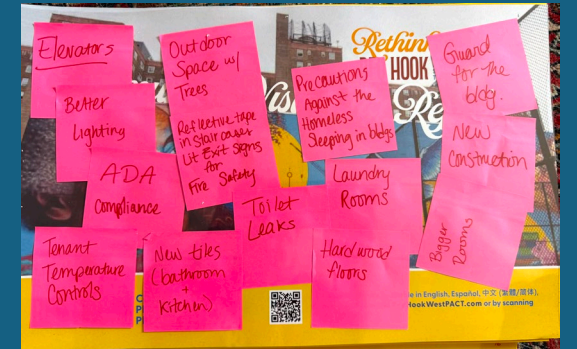 Elevators
Better
Lighting
ADA
Compliance
Tenant
Temperature
Controls
Outdoor
Space w/
Trees
Reflective tape
in staircases
Lit Exit Signs
for
Fire Safety
New tiles
(bathroom
+
Kitchen)
Toilet
Leaks
Precautions
Against the
Homeless
Sleeping in bldgs
Laundry
Rooms
Hardwood
floors
Guard
for the
bldg.
New
Construction
Bigger
Rooms
HOOK
Re
e in English, Español, 中文 (繁體/简体),
HookWestPACT.com or by scanning